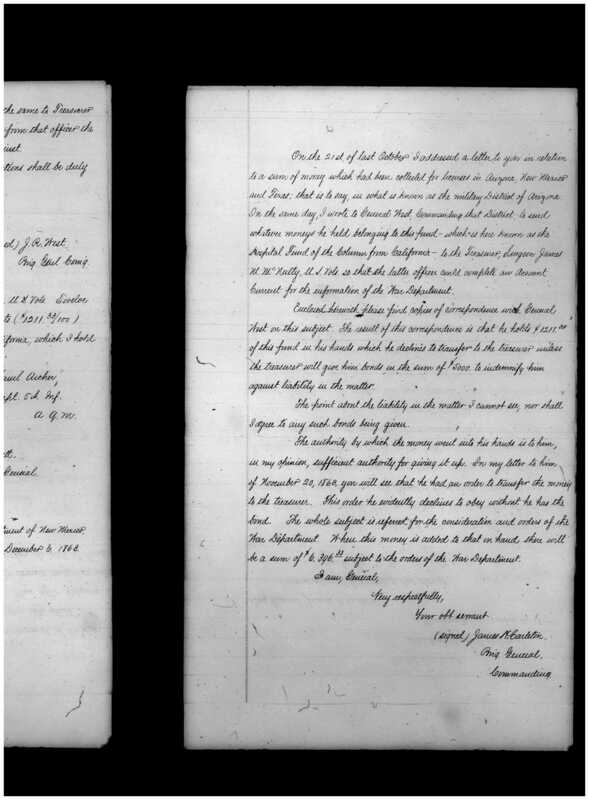 the same to Treasurer
from that officer the
shall be duly
J. R. West,
Brig Genl Comg.
U S Vols Twelve
($1211.
which I hold
Archer,
5th Inf.
A. G. M.
General
of New Mexico
December 6, 186
On the 21st of last October I addressed a letter to you in relation
to a sum of money which had been collected for licenses in Arizona, New Mexico
and Texas; that is to say, in what is known as the military District of Arizona
On the same day, I wrote to General West, Commanding that District, to send
whatever moneys he held belonging to this fund - which is here known as the
Hospital Fund of the Column from California - to the Treasurer, Surgeon James
M. McNulty, U S Vols so that the latter officer could complete an account
Current for the information of the War Department.
Enclosed herewith please find copies of correspondence with General
West on this subject. The result of this correspondence is that he holds $1211.
of this fund in his hands which he declines to transfer to the treasurer unless
the treasurer will give him bonds in the sum of $5000. to indemnify him
against liability in the matter.
The point about the liability in the matter I cannot see, nor shall
I agree to any such bonds being given.
The authority by which the money went into his hands is to him,
in my opinion, sufficient authority for giving it up. In my letter to him
of November 20, 186 you will see that he had an order to transfer the money
to the treasurer. This order he evidently declines to obey without he has the
bond. The whole subject is referred for the consideration and orders of the
War Department. When this money is added to that in hand, there will
be a sum of $6,396. subject to the orders of the War Department.
I am, General,
Very respectfully,
Your obt servant
(signed) James H. Carleton.
Brig General,
Commanding